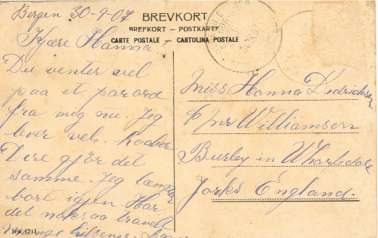 Bergen 30-9-07
BREVKORT
BREFKORT - POSTKARTE
CARTE POSTALE - CARTOLINA POSTALE
Kjære Hanna
Du venter vel
paa et par ord
fra mig nu. Jeg
lever vel. Haaber
Dere gjør det
samme. Jeg længter
bort igjen. Har
det nokaa travelt
Miss Hanna Pedersen
c/o Mr Williamson
Burley in Wharfedale
Yorks England.